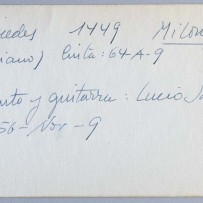 uedes 1449 Milon
iano) Cinta: 64-A-9
nto y guitarra: Lucio S
56-Nov-9